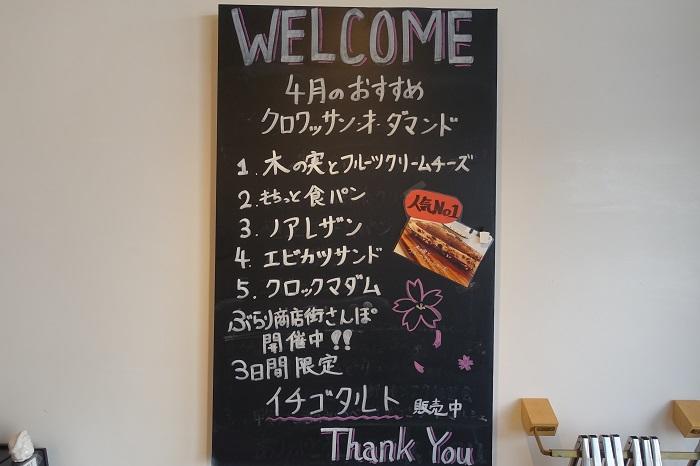 WELCOME
4月のおすすめ
クロワッサン・オ・ダマンド
1. 木の実とフルーツクリームチーズ
2. もちっと食パン
3. ノアレザン
人気No1
4. エビカツサンド
5. クロックマダム
ぶらり商店街さんぽ
開催中!!
3日間限定
イチゴタルト 販売中
Thank You